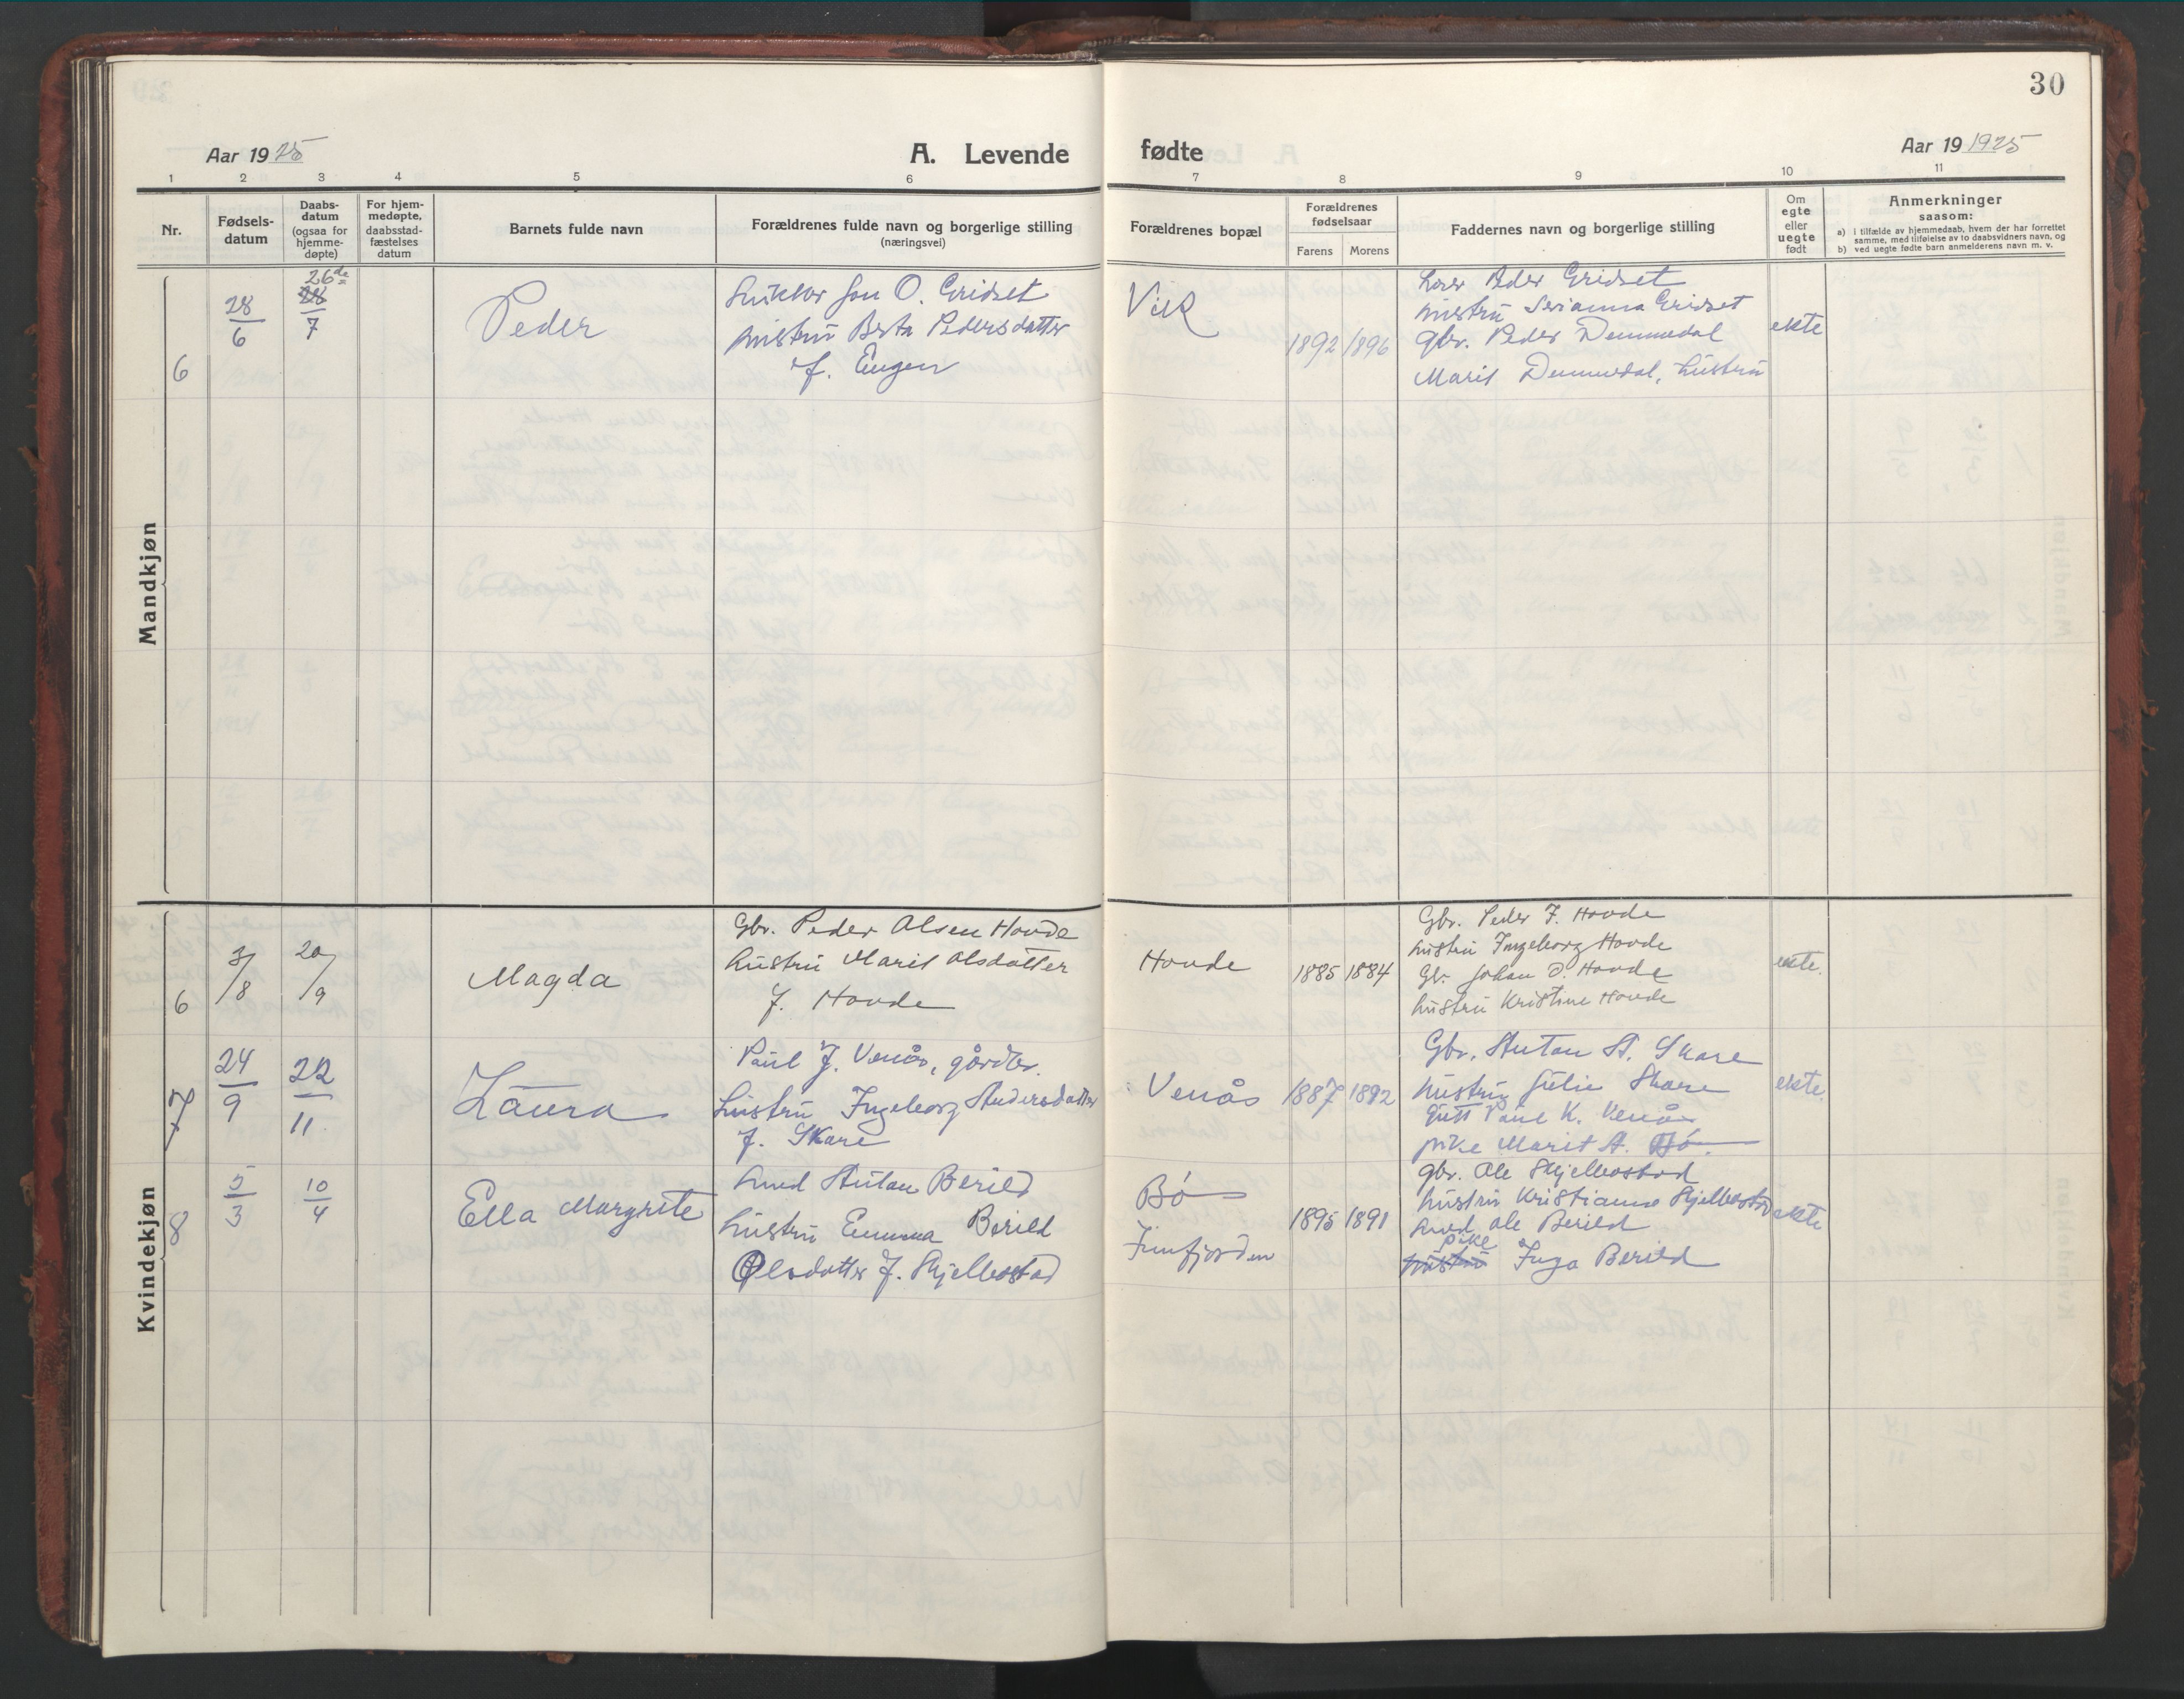 30
Aar 19 25
A. Levende fødte
Aar 19 1925
1 2 3 4 5 6 7 8 9 10 11
Nr.
Fødsels-
datum
Daabs-
datum
(ogsaa for
hjemme-
døpte)
For hjem-
medøpte,
daabsstad-
fæstelses
datum
Barnets fulde navn
Forældrenes fulde navn og borgerlige stilling
(næringsvei)
Forældrenes bopæl
Forældrenes
fødselsaar
Farens Morens
Faddernes navn og borgerlige stilling
Om
egte
eller
uegte
født
Anmerkninger
saasom:
a) i tilfælde av hjemmedaab, hvem der har forrettet
samme, med tilføielse av to daabsvidners navn, og
b) ved uegte fødte barn anmelderens navn m. v.
Mandkjøn
6
28/6
26de
28
7
Peder
Snikker Jon O. Eridset
hustru Berta Pedersdatter
f. Engen
Vik
1892 1896
Peder Eridset
hustru Serianna Eridset
gbr. Peder Dummedal
Marit Dummedal, hustru
ekte
Kvindekjøn
6
3/8
20/9
Magda
Gbr. Peder Olsen Hovde
hustru Marit Olsdatter
f. Hovde
Hovde
1885 1884
Gbr. Peder J. Hovde
hustru Ingeborg Hovde
Gbr. Johan O. Hovde
hustru Kristine Hovde
ekte.
7
24/9
22
11
Laura
Paul J. Venås, gårdbr.
hustru Ingeborg Andersdatter
f. Skare
Venås
1887 1892
Gbr. Anton A. Skare
hustru Julie Skare
Gutt Paul K. Venås
pike Marit A. Bö
ekte.
8
5/3
10/4
Ella Margrete
Smed Anton Berild
hustru Emma Berild
Olsdatter f. Skjelbostad
Bö
Innfjorden
1895 1891
gbr. Ole Skjelbostad
hustru Kristianna Skjelbostad
smed Ole Berild
pike
hustru Inga Berild
ekte